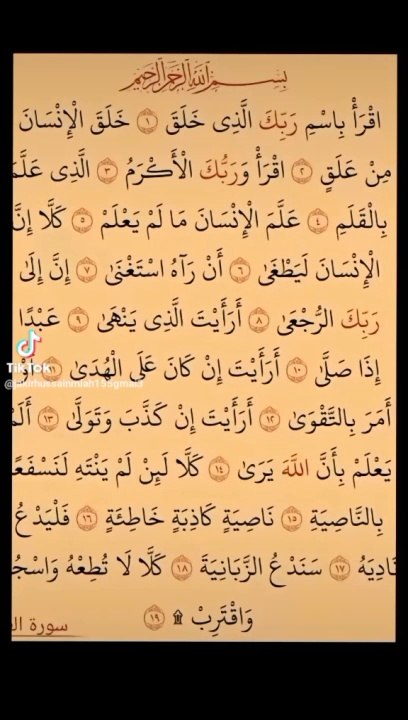 بِسْمِ اللَّهِ الرَّحْمَٰنِ الرَّحِيمِ
اقْرَأْ بِاسْمِ رَبِّكَ الَّذِى خَلَقَ ﴿١﴾ خَلَقَ الْإِنْسَانَ
مِنْ عَلَقٍ ﴿٢﴾ اقْرَأْ وَرَبُّكَ الْأَكْرَمُ ﴿٣﴾ الَّذِى عَلَّمَ
بِالْقَلَمِ ﴿٤﴾ عَلَّمَ الْإِنْسَانَ مَا لَمْ يَعْلَمْ ﴿٥﴾ كَلَّا إِنَّ
الْإِنْسَانَ لَيَطْغَىٰ ﴿٦﴾ أَنْ رَآهُ اسْتَغْنَىٰ ﴿٧﴾ إِنَّ إِلَىٰ
رَبِّكَ الرُّجْعَىٰ ﴿٨﴾ أَرَأَيْتَ الَّذِى يَنْهَىٰ ﴿٩﴾ عَبْدًا
إِذَا صَلَّىٰ ﴿١٠﴾ أَرَأَيْتَ إِنْ كَانَ عَلَى الْهُدَىٰ ﴿١١﴾ أَوْ
أَمَرَ بِالتَّقْوَىٰ ﴿١٢﴾ أَرَأَيْتَ إِنْ كَذَّبَ وَتَوَلَّىٰ ﴿١٣﴾ أَلَمْ
يَعْلَمْ بِأَنَّ اللَّهَ يَرَىٰ ﴿١٤﴾ كَلَّا لَئِنْ لَمْ يَنْتَهِ لَنَسْفَعًا
بِالنَّاصِيَةِ ﴿١٥﴾ نَاصِيَةٍ كَاذِبَةٍ خَاطِئَةٍ ﴿١٦﴾ فَلْيَدْعُ
نَادِيَهُ ﴿١٧﴾ سَنَدْعُ الزَّبَانِيَةَ ﴿١٨﴾ كَلَّا لَا تُطِعْهُ وَاسْجُ
وَاقْتَرِبْ ۩ ﴿١٩﴾
سورة
TikTok